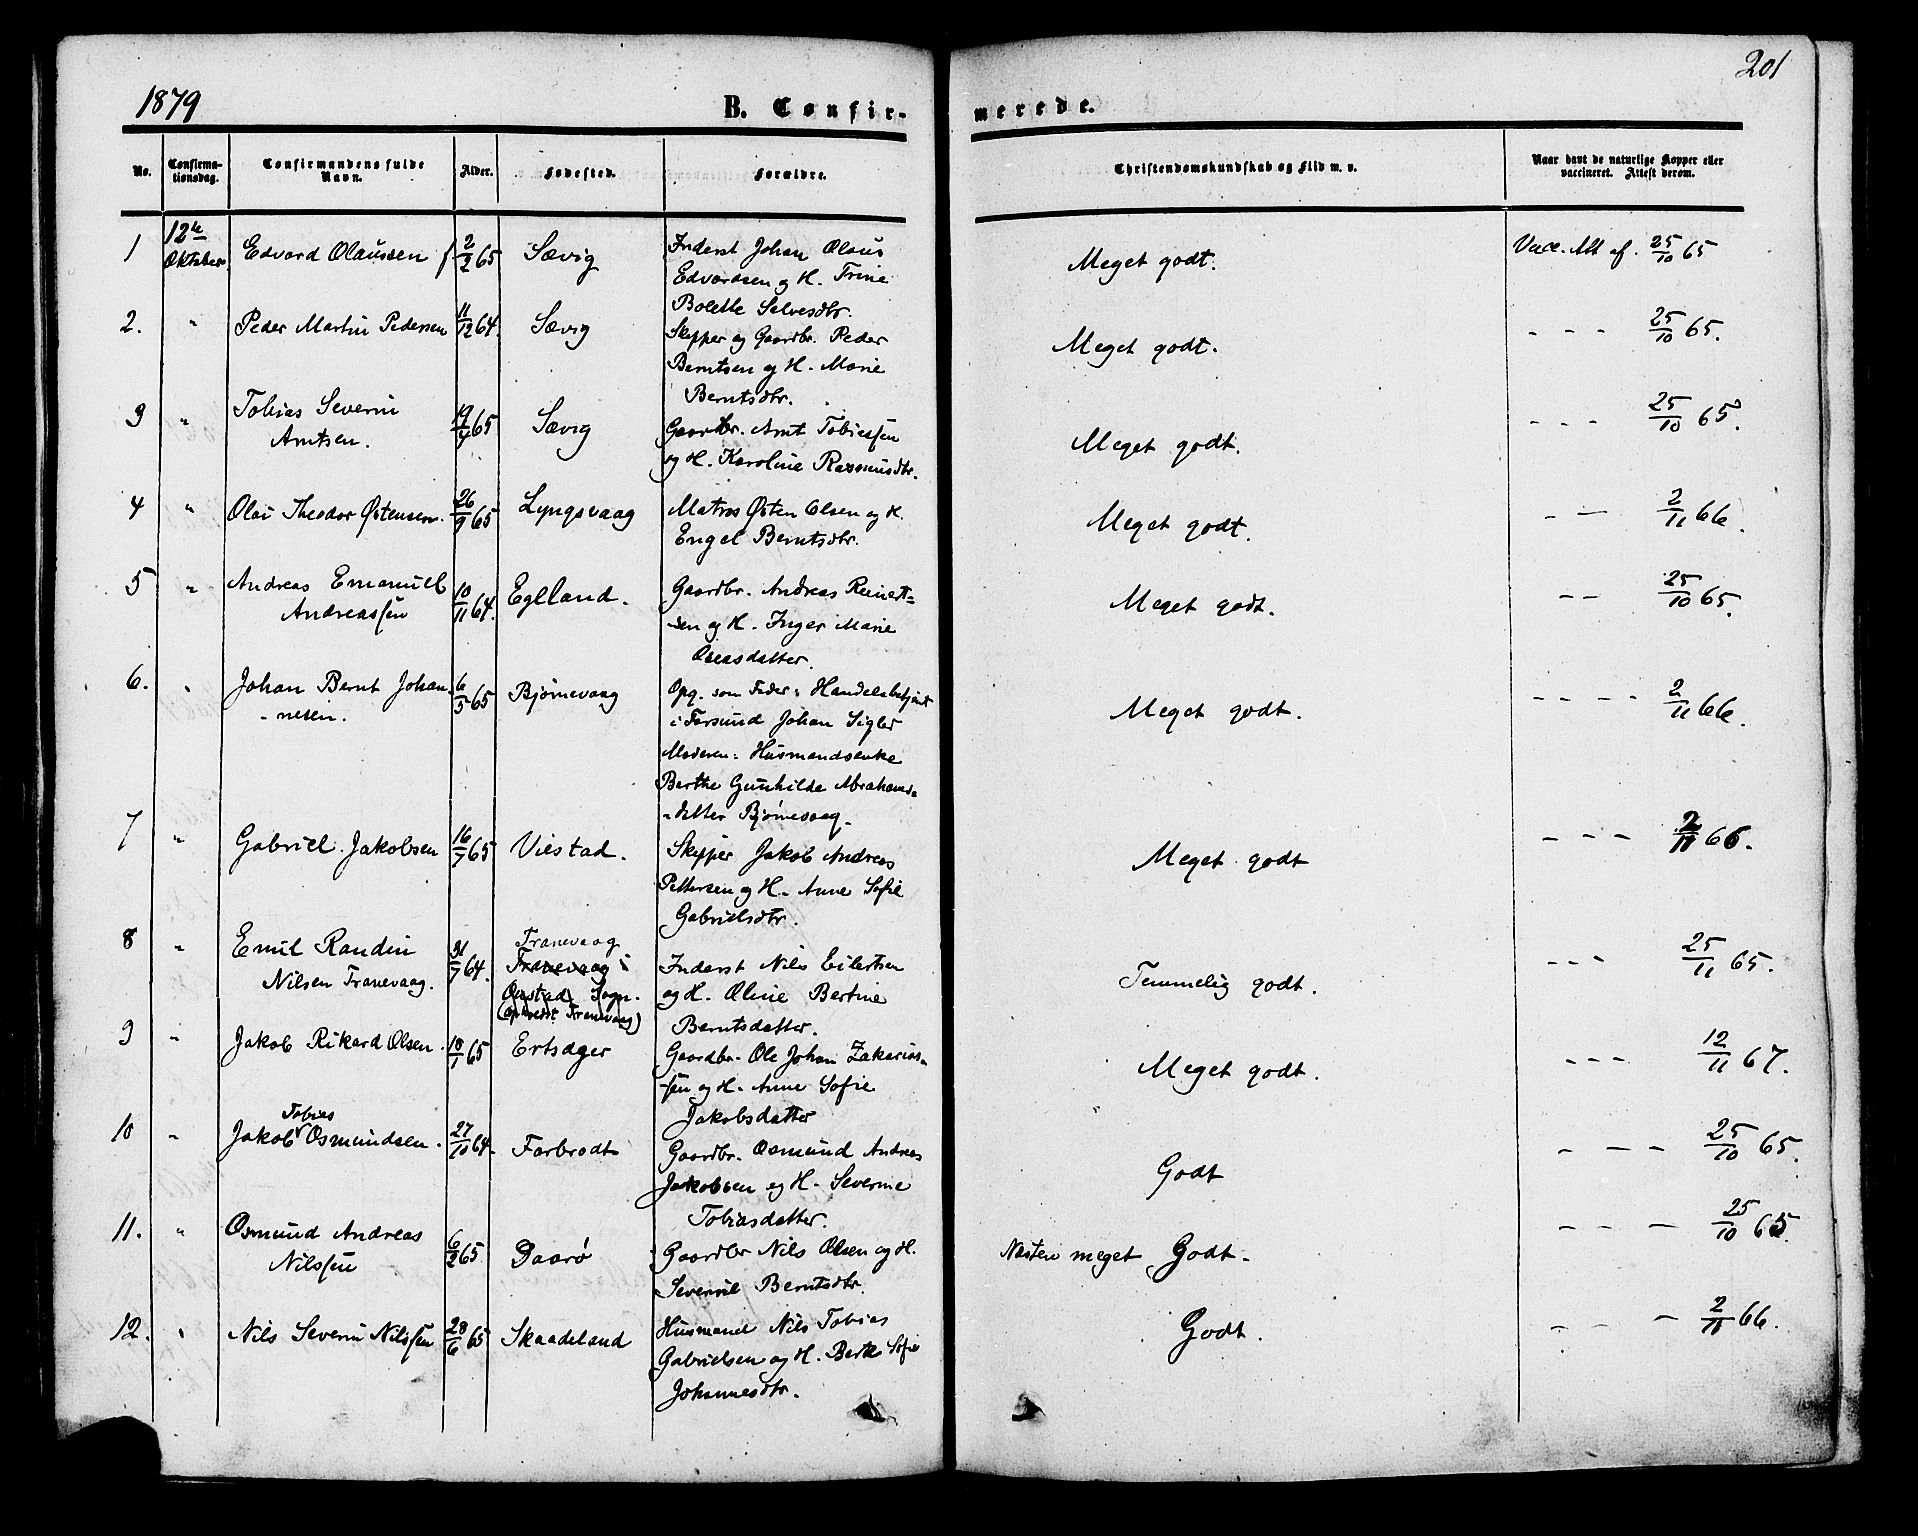 201
1879
B. Confir-
merede.
No.
Confirma-
tionsdag.
Confirmandens fulde
Navn.
Alder.
Fødested.
Forældre.
Christendomskundskab og Flid m. v.
Naar havt de naturlige Kopper eller
vaccineret. Attest derom.
1 12te Oktober Edvard Olaussen f. 2/2 65 Sævig
Inderst Johan Olaus
Edvardsen og H. Trine
Bolette Salvesdtr.
Meget godt. Vacc. Att af. 25/10 65
2. " Peder Martin Pedersen 11/12 64. Sævig
Skipper og Gaardbr. Peder
Berntsen og H. Marie
Berntsdtr.
Meget godt. - - - 25/10 65.
3 " Tobias Severin
Arntsen. 19/4 65 Sævig
Gaardbr. Arnt Tobiessen
og H. Karoline Rasmusdtr.
Meget godt. - - - 25/10 65.
4 " Olai Theodor Østensen. 26/9 65 Lyngsvaag
Matros Østen Olsen og H.
Engel Berntsdtr.
Meget godt. - — 2/11 66.
5 " Andreas Emanuel
Andreassen 10/11 64. Eglland.
Gaardbr. Andreas Reinert=
sen og H. Inger Marie
Oseasdatter.
Meget godt. - - 25/10 65.
6. " Johan Bernt Johan
-nesen. 6/5 65 Bjørnevaag
Opg. som Fader: Handelsbetjent
i Farsund Johan Sigler
Moderen: Husmandsenke
Berthe Gunhilde Abrahams=
-datter Bjørnevaag.
Meget godt. - - - - 2/11 66.
7 " Gabriel Jakobsen 16/7 65 Viestad.
Skipper Jakob Andreas
Pettersen og H. Anne Sofie
Gabrielsdtr.
Meget godt - - - 2/11 66.
8 " Emil Randin
Nilsen Tranevaag. 31/7 64.
Tranevaag
Tranevaag i
Sogn.
Tranevaag)
Inderst Nils Eilertsen
og H. Oline Bertine
Berntsdatter.
Temmelig godt. - - - 25/11 65.
9 " Jakob Rikard Olsen. 10/1 65 Ertsager
Gaardbr. Ole Johan Zakarias=
-sen og H. Anne Sofie
Jakobsdatter
Meget godt. - - - 12/11 67.
10 " Tobias
Jakob Osmundsen. 27/10 64. Farbrodt
Gaardbr. Osmund Andreas
Jakobsen og H. Severine
Tobiasdatter.
Godt - — — 25/10 65.
11. " Osmund Andreas
Nilssen 6/2 65 Daarø
Gaardbr Nils Olsen og H.
Severine Berntsdtr.
Næsten meget Godt. - - — 25/10 65.
12. " Nils Severin Nilssen 28/6 65 Skaadeland
Husmand Nils Tobias
Gabrielsen og H. Berte Sofie
Johannesdtr.
Godt. - - — 2/11 66.